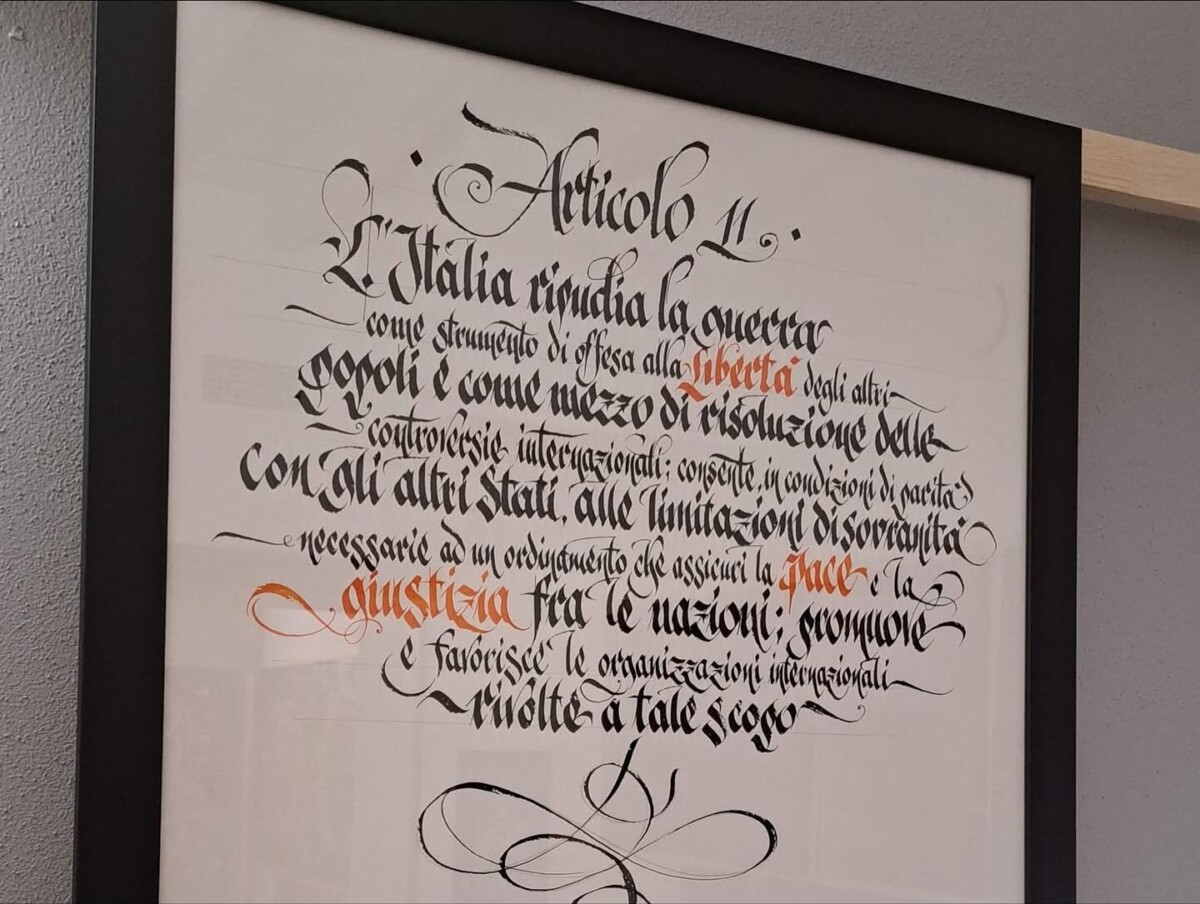 Articolo 11.
L'Italia ripudia la guerra
come strumento di offesa alla libertà degli altri
popoli e come mezzo di risoluzione delle
controversie internazionali; consente, in condizioni di parità
con gli altri Stati, alle limitazioni di sovranità
necessarie ad un ordinamento che assicuri la pace e la
giustizia fra le nazioni; promuove
e favorisce le organizzazioni internazionali
rivolte a tale scopo